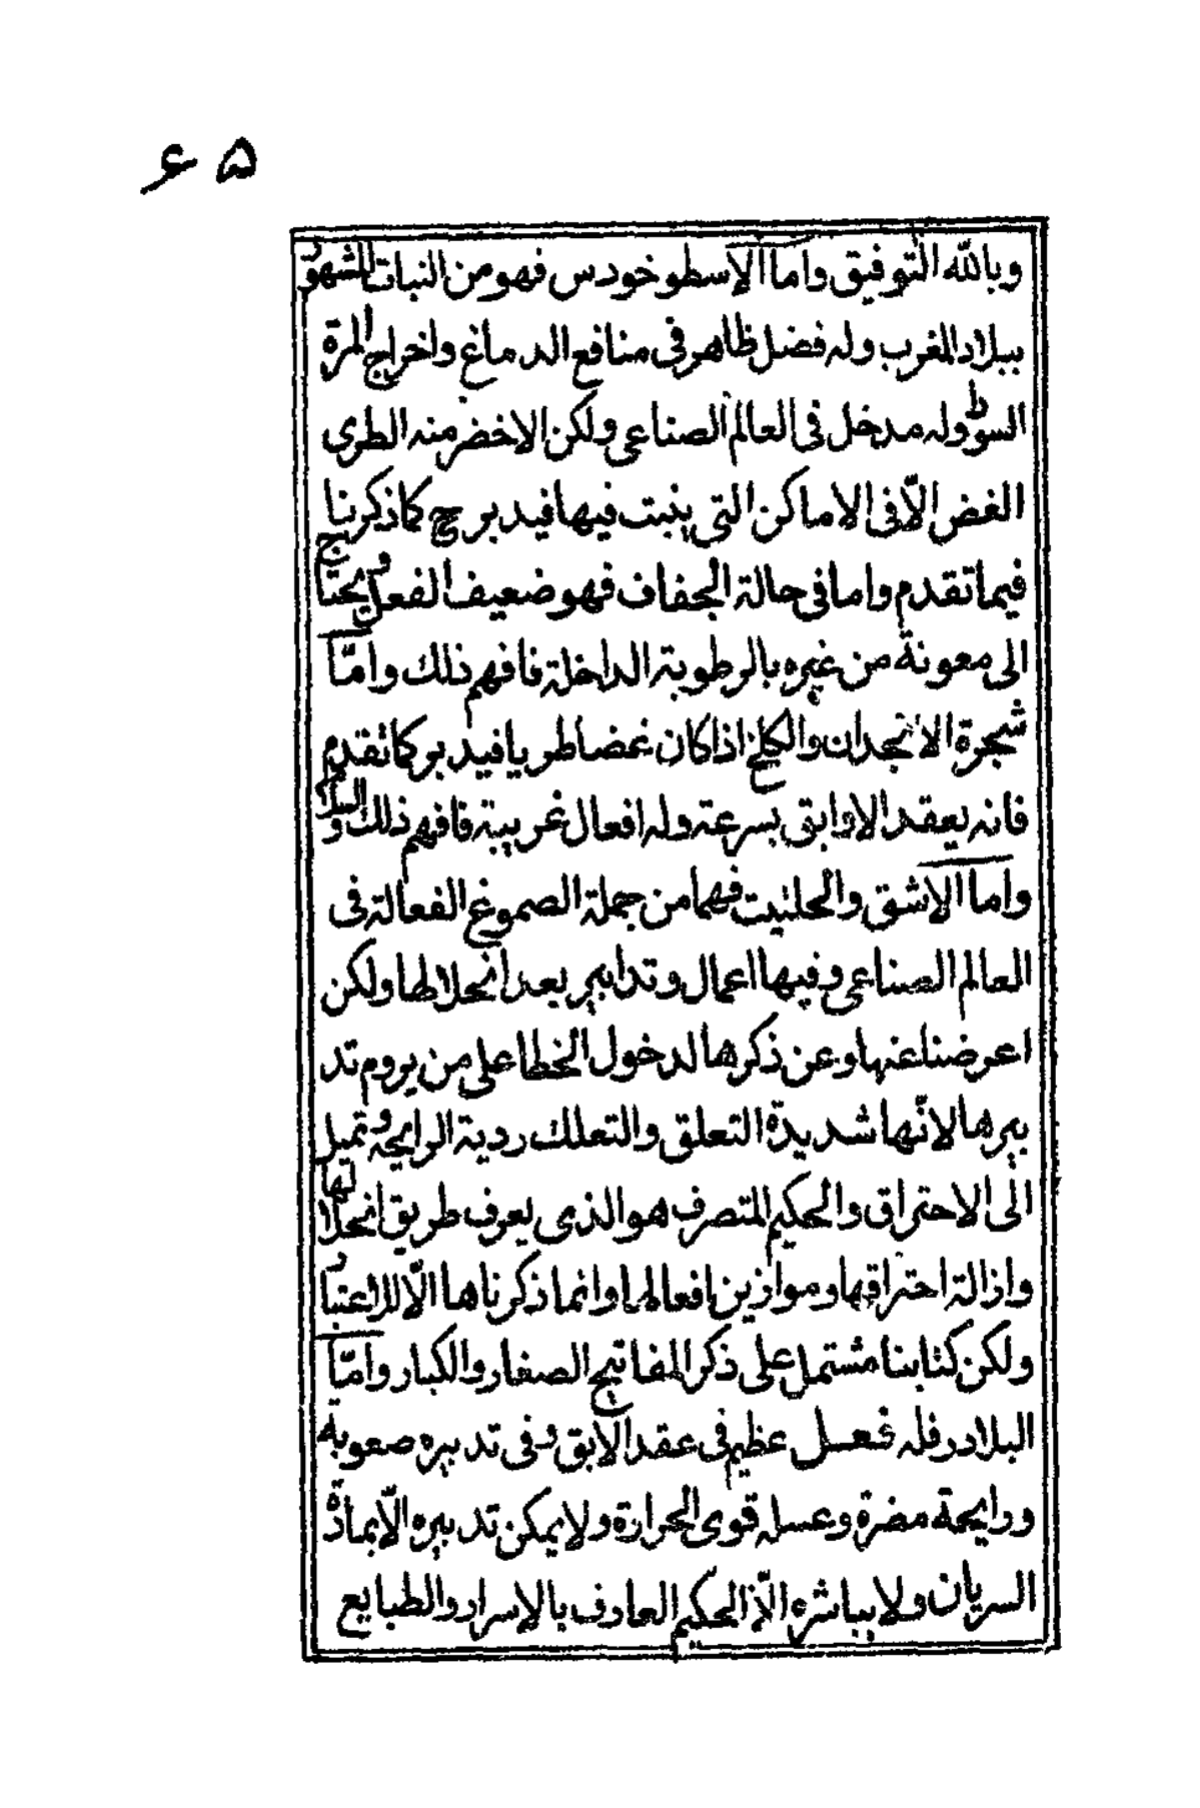 ۶۵
وبالله التوفيق واما الاسطوخودس فهو من النبات المشهور
ببلاد المغرب وله فضل ظاهر فى منافع الدماغ واخراج المرة
السودا وله مدخل فى العالم الصناعى ولكن الاخضر منه الطرى
الغض الّا فى الاماكن التى ينبت فيها فيدبر ح كما ذكرنا
فيما تقدم واما فى حالة الجفاف فهو ضعيف الفعل ويحتاج
الى معونة من غيره بالرطوبة الداخلة فافهم ذلك وامّا
شجرة الانجدان والكلخ اذا كان غضا طريا فيدبر كما تقدم
فانه يعقد الاوابق بسرعة وله افعال غريبة فافهم ذلك والسلام
واما الاشق والحلتيت فهما من جملة الصموغ الفعالة فى
العالم الصناعى وفيها اعمال وتدابير بعد انحلالها ولكن
اعرضنا عنها وعن ذكرها لدخول الخطا على من يروم تد
بيرها لانّها شديدة التعلق والتعلك ردية الرايحة وتميل
الى الاحتراق والحكيم المتصرف هو الذى يعرف طريق انحلالها
وازالة احتراقها وموازين افعالها وانما ذكرناها الّا للاعتبار
ولكن كتابنا مشتمل على ذكر المفاتيح الصغار والكبار وامّا
البلادر فله فعل عظيم فى عقد الآبق وفى تدبيره صعوبة
ورايحة مضرة وعسله قوى الحرارة ولا يمكن تدبيره الّا بمادة
السريان ولا يباشره الّا الحكيم العارف بالاسرار والطبايع